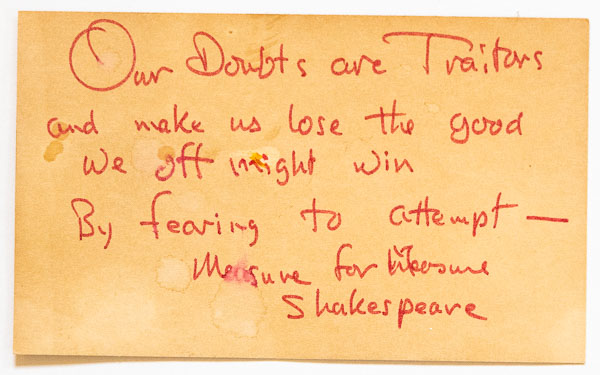 Our Doubts are Traitors
and make us lose the good
we oft might win
By fearing to attempt —
Measure for Measure
Shakespeare